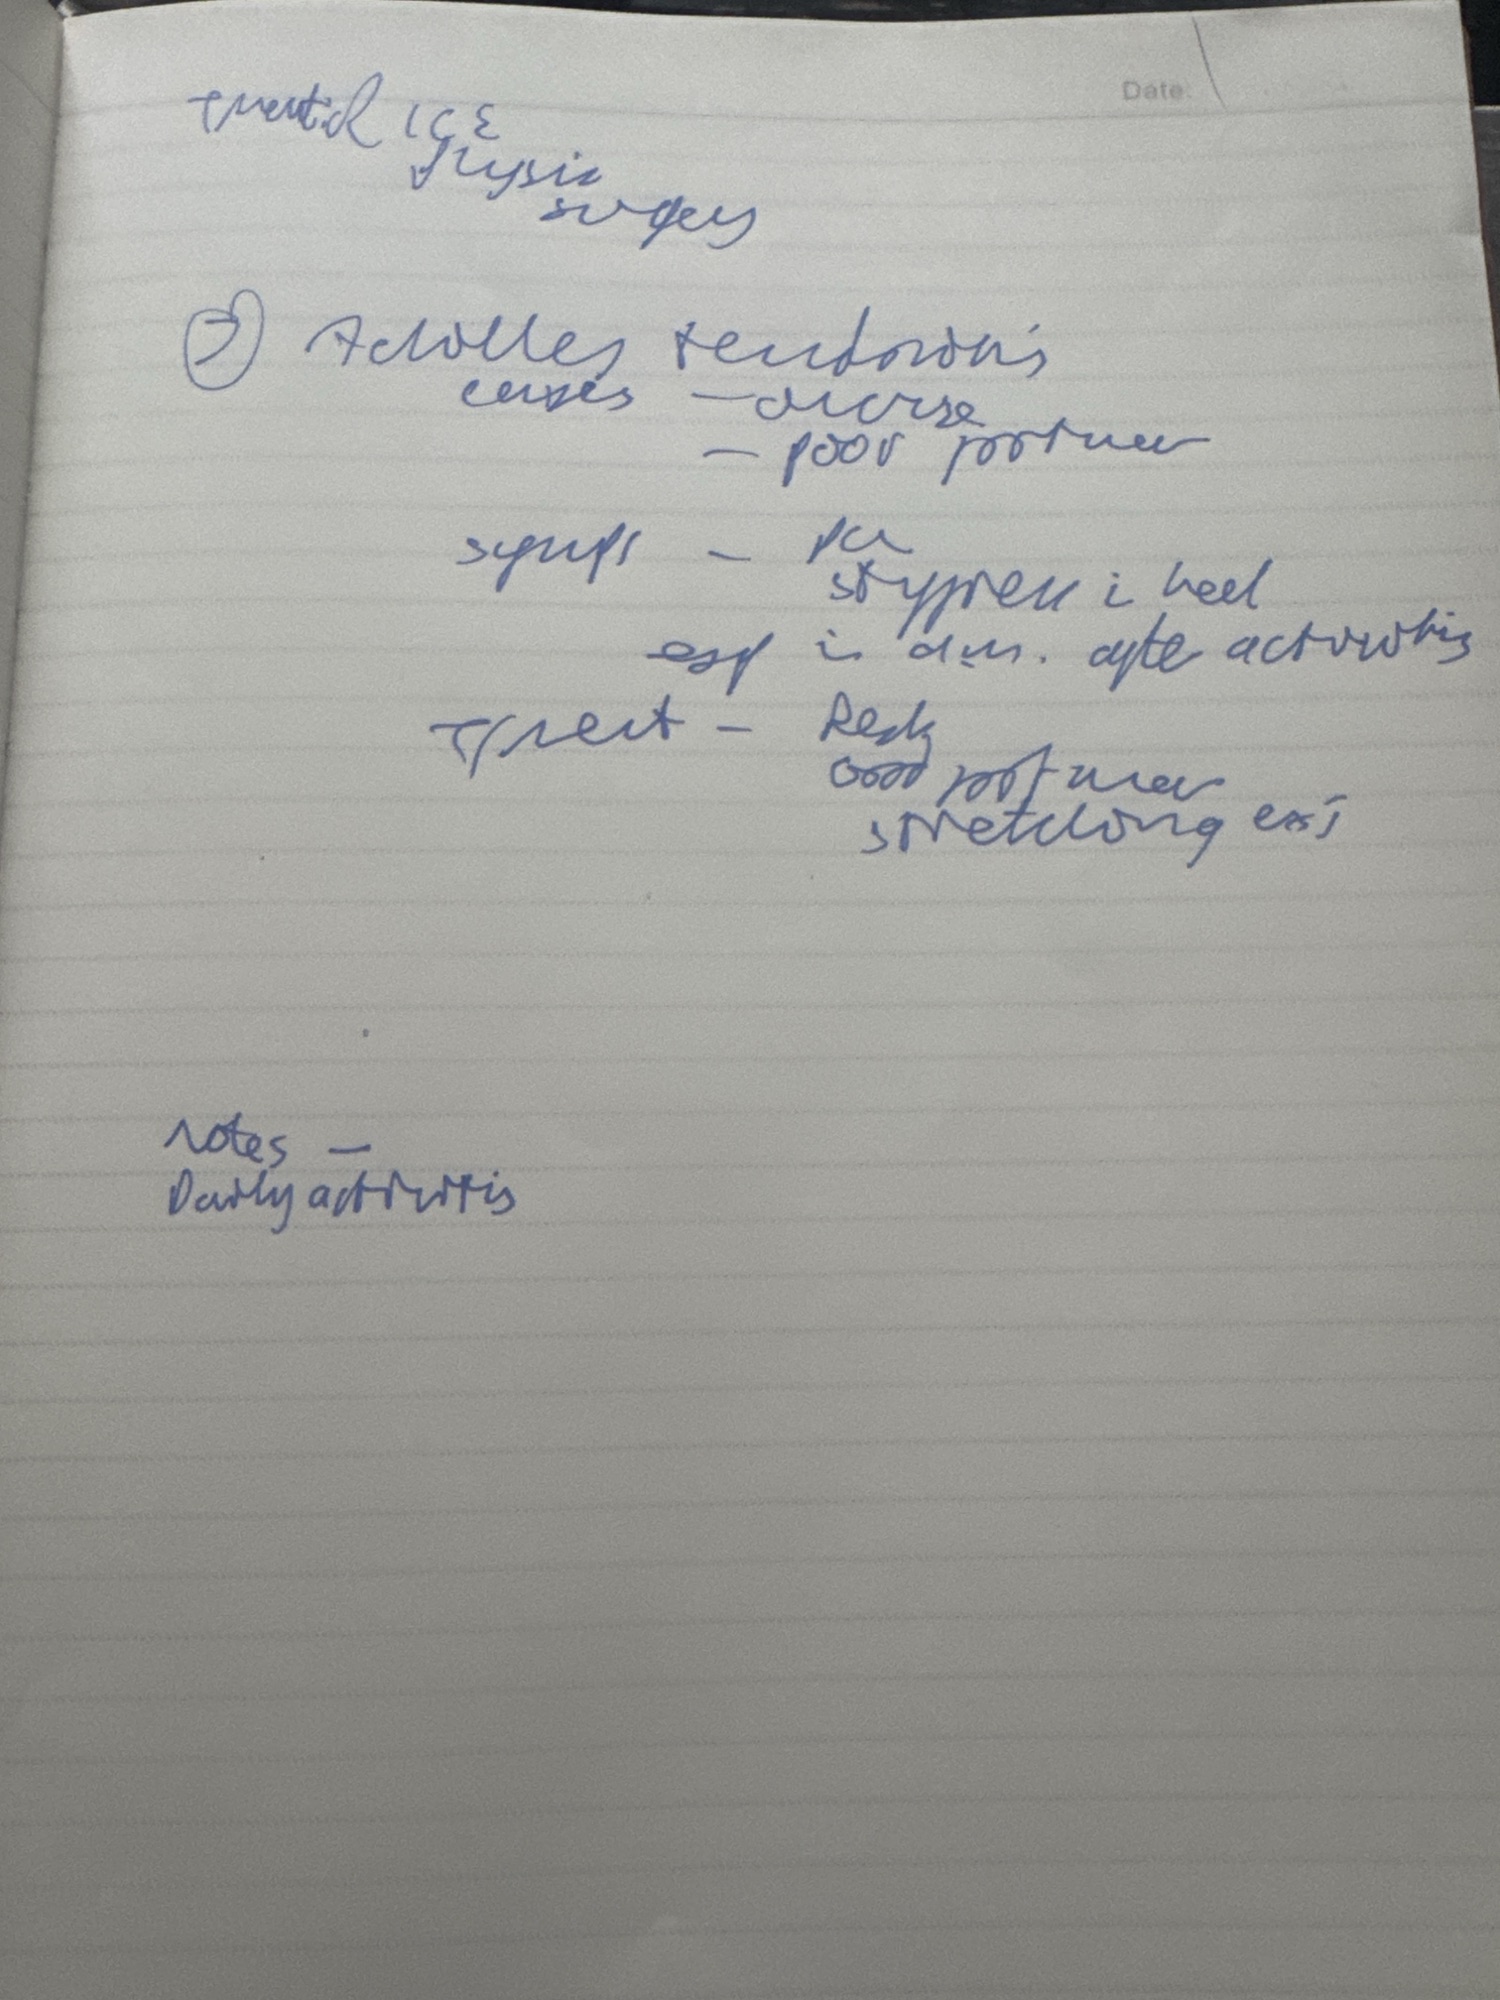 Date:
ICE
physio
surgery
Achilles tendonitis
causes - overuse
- poor footwear
sympts -
in heel
esp in a.m. after activities
Treat - Rest,
Good footwear
stretching exs
Notes -
Daily activities